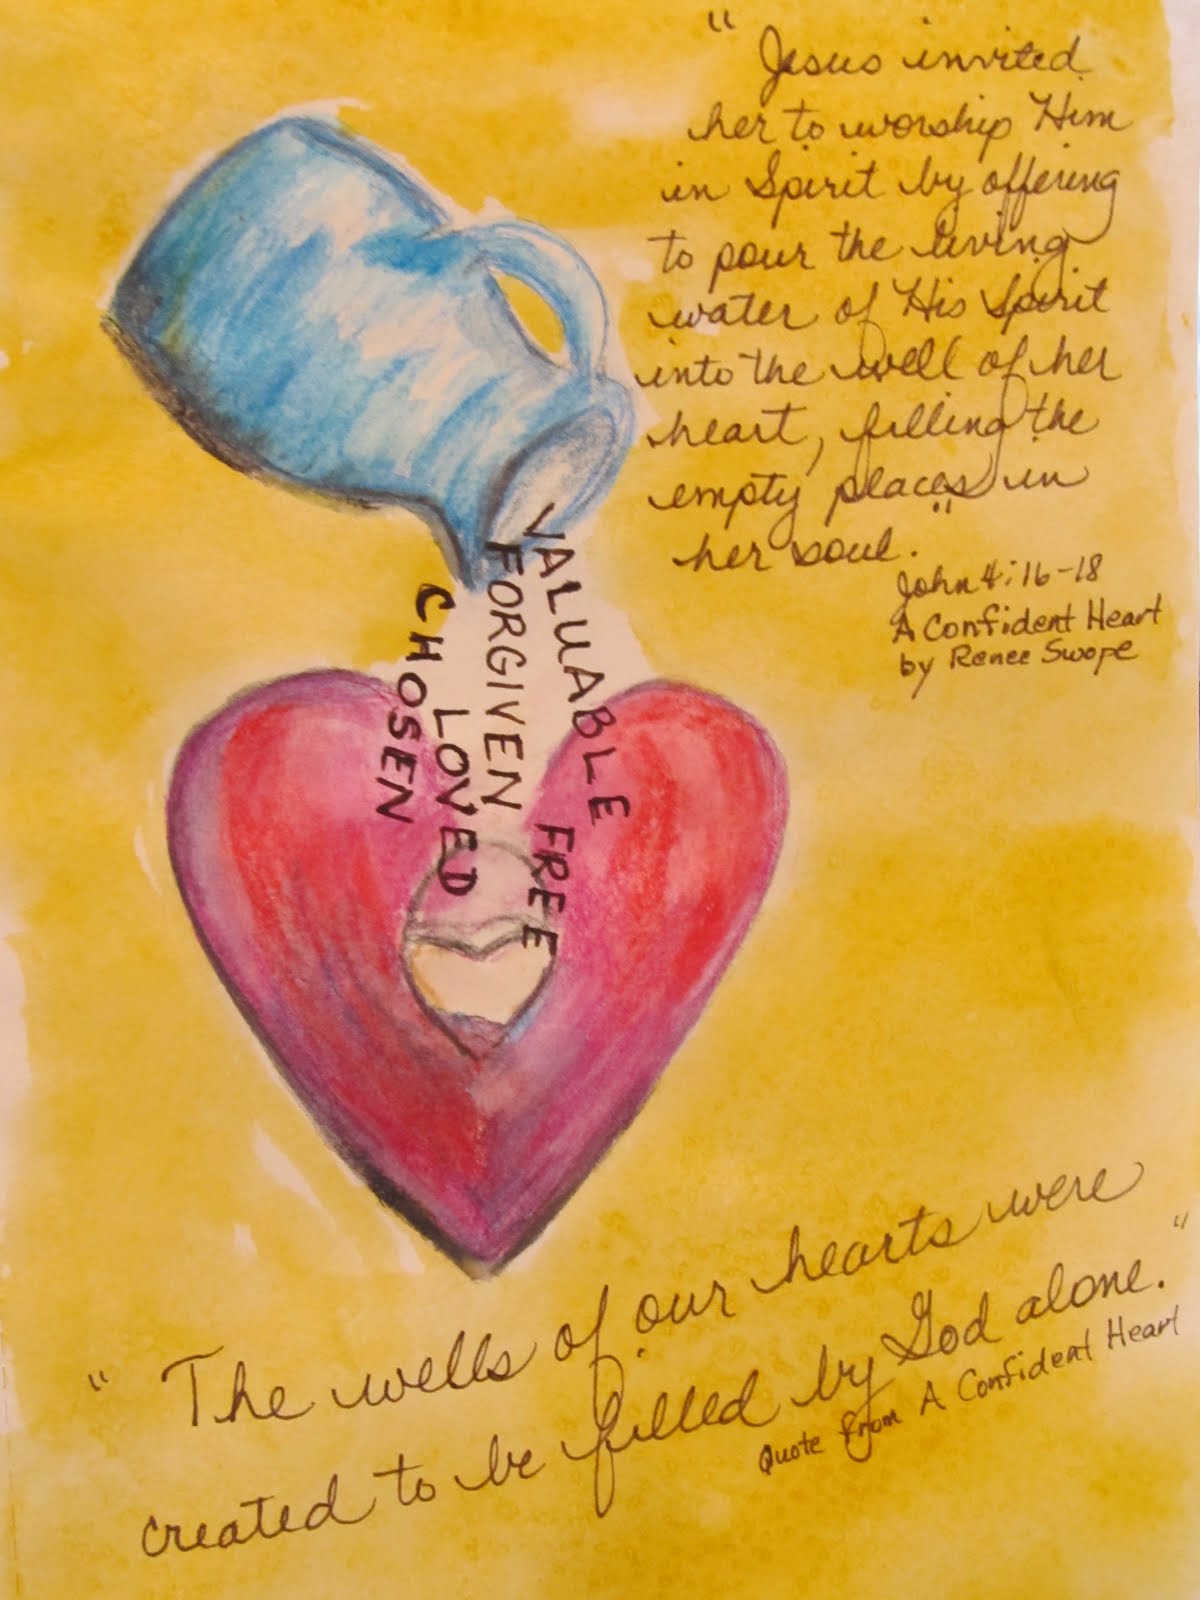 "Jesus invited
her to worship Him
in Spirit by offering
to pour the living
water of His Spirit
into the well of her
heart, filling the
empty places in
her soul."
John 4:16-18
A Confident Heart
by Renee Swope
VALUABLE
FORGIVEN
CHOSEN
LOVED
FREE
"The wells of our hearts were
created to be filled by God alone."
Quote from A Confident Heart